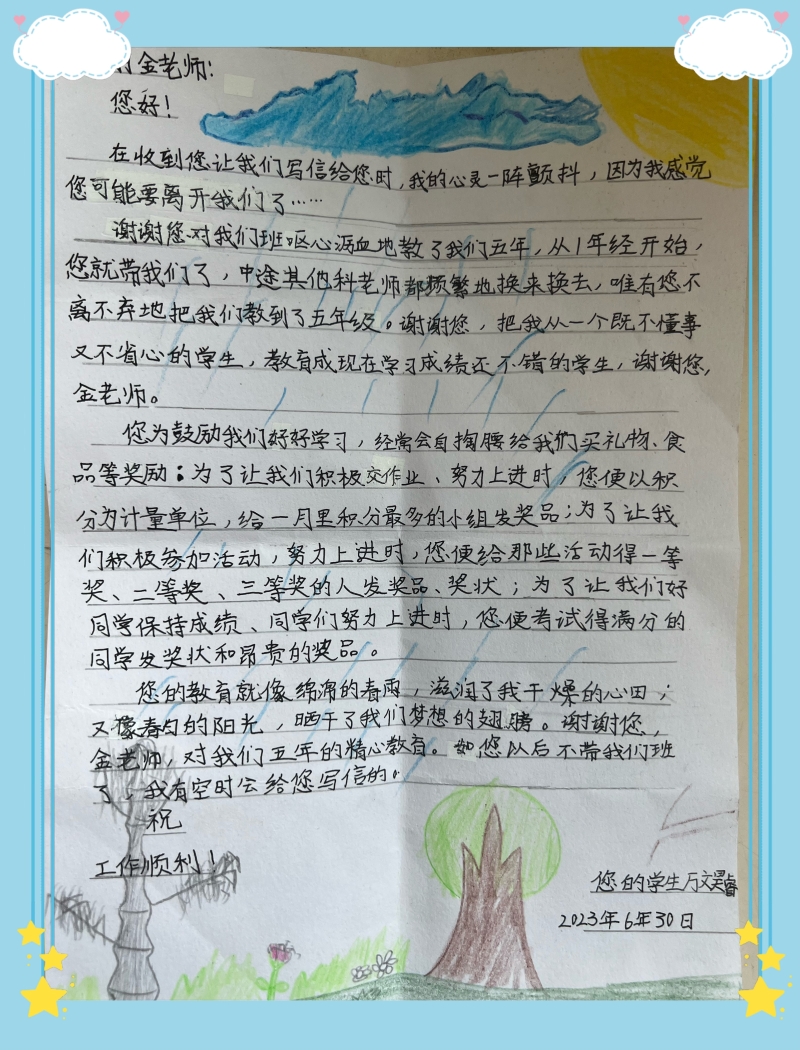 金老师:
您好!
在收到您让我们写信给您时,我的心灵一阵颤抖,因为我感觉
您可能要离开我们了……
谢谢您对我们班呕心沥血地教了我们五年,从1年经开始,
您就带我们了,中途其他科老师都频繁地换来换去,唯有您不
离不弃地把我们教到了五年级。谢谢您,把我从一个既不懂事
又不省心的学生,教育成现在学习成绩还不错的学生,谢谢您,
金老师。
您为鼓励我们好好学习,经常会自掏腰给我们买礼物、食
品等奖励:为了让我们积极交作业、努力上进时,您便以积
分为计量单位,给一月里积分最多的小组发奖品;为了让我
们积极参加活动,努力上进时,您便给那些活动得一等
奖、二等奖、三等奖的人发奖品、奖状;为了让我们好
同学保持成绩、同学们努力上进时,您便考试得满分的
同学发奖状和昂贵的奖品。
您的教育就像绵绵的春雨,滋润了我干燥的心田;
又像春匀的阳光,晒干了我们梦想的翅膀。谢谢您,
金老师,对我们五年的精心教育。如您以后不带我们班
了,我有空时会给您写信的。
祝
工作顺利!
您的学生万文昊睿
2023年6年30日